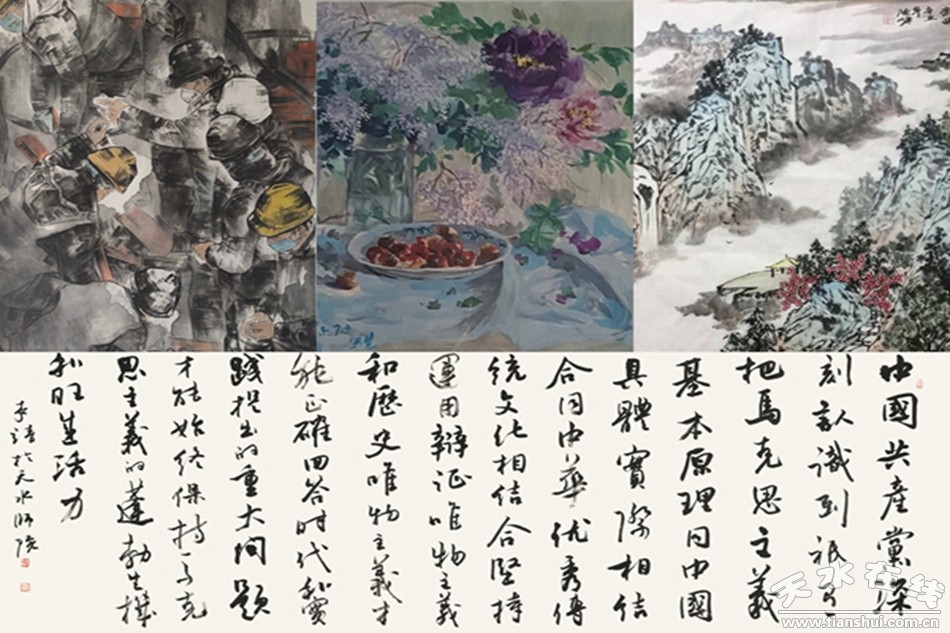 中國共産黨深
刻認識到祇有
把馬克思主義
基本原理同中國
具體實際相结
合同中華优秀傳
统文化相结合坚持
運用辯证唯物主義
和歷史唯物主義才
能正確回答时代和實
踐提出的重大问題
才能始终保持马克
思主義的蓬勃生機
和旺盛活力
於天水师院
天水在线
www.tianshui.com.cn